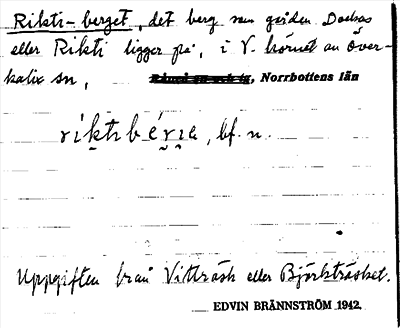 Rikti-berget, det berg som gården Dockas
eller Rikti ligger på, i V. hörnet av Över-
kalix sn, Norrbottens län
riktɩbérɩa, bf. n.
Uppgiften från Vitträsk eller Björkträsket.
EDVIN BRÄNNSTRÖM 1942.